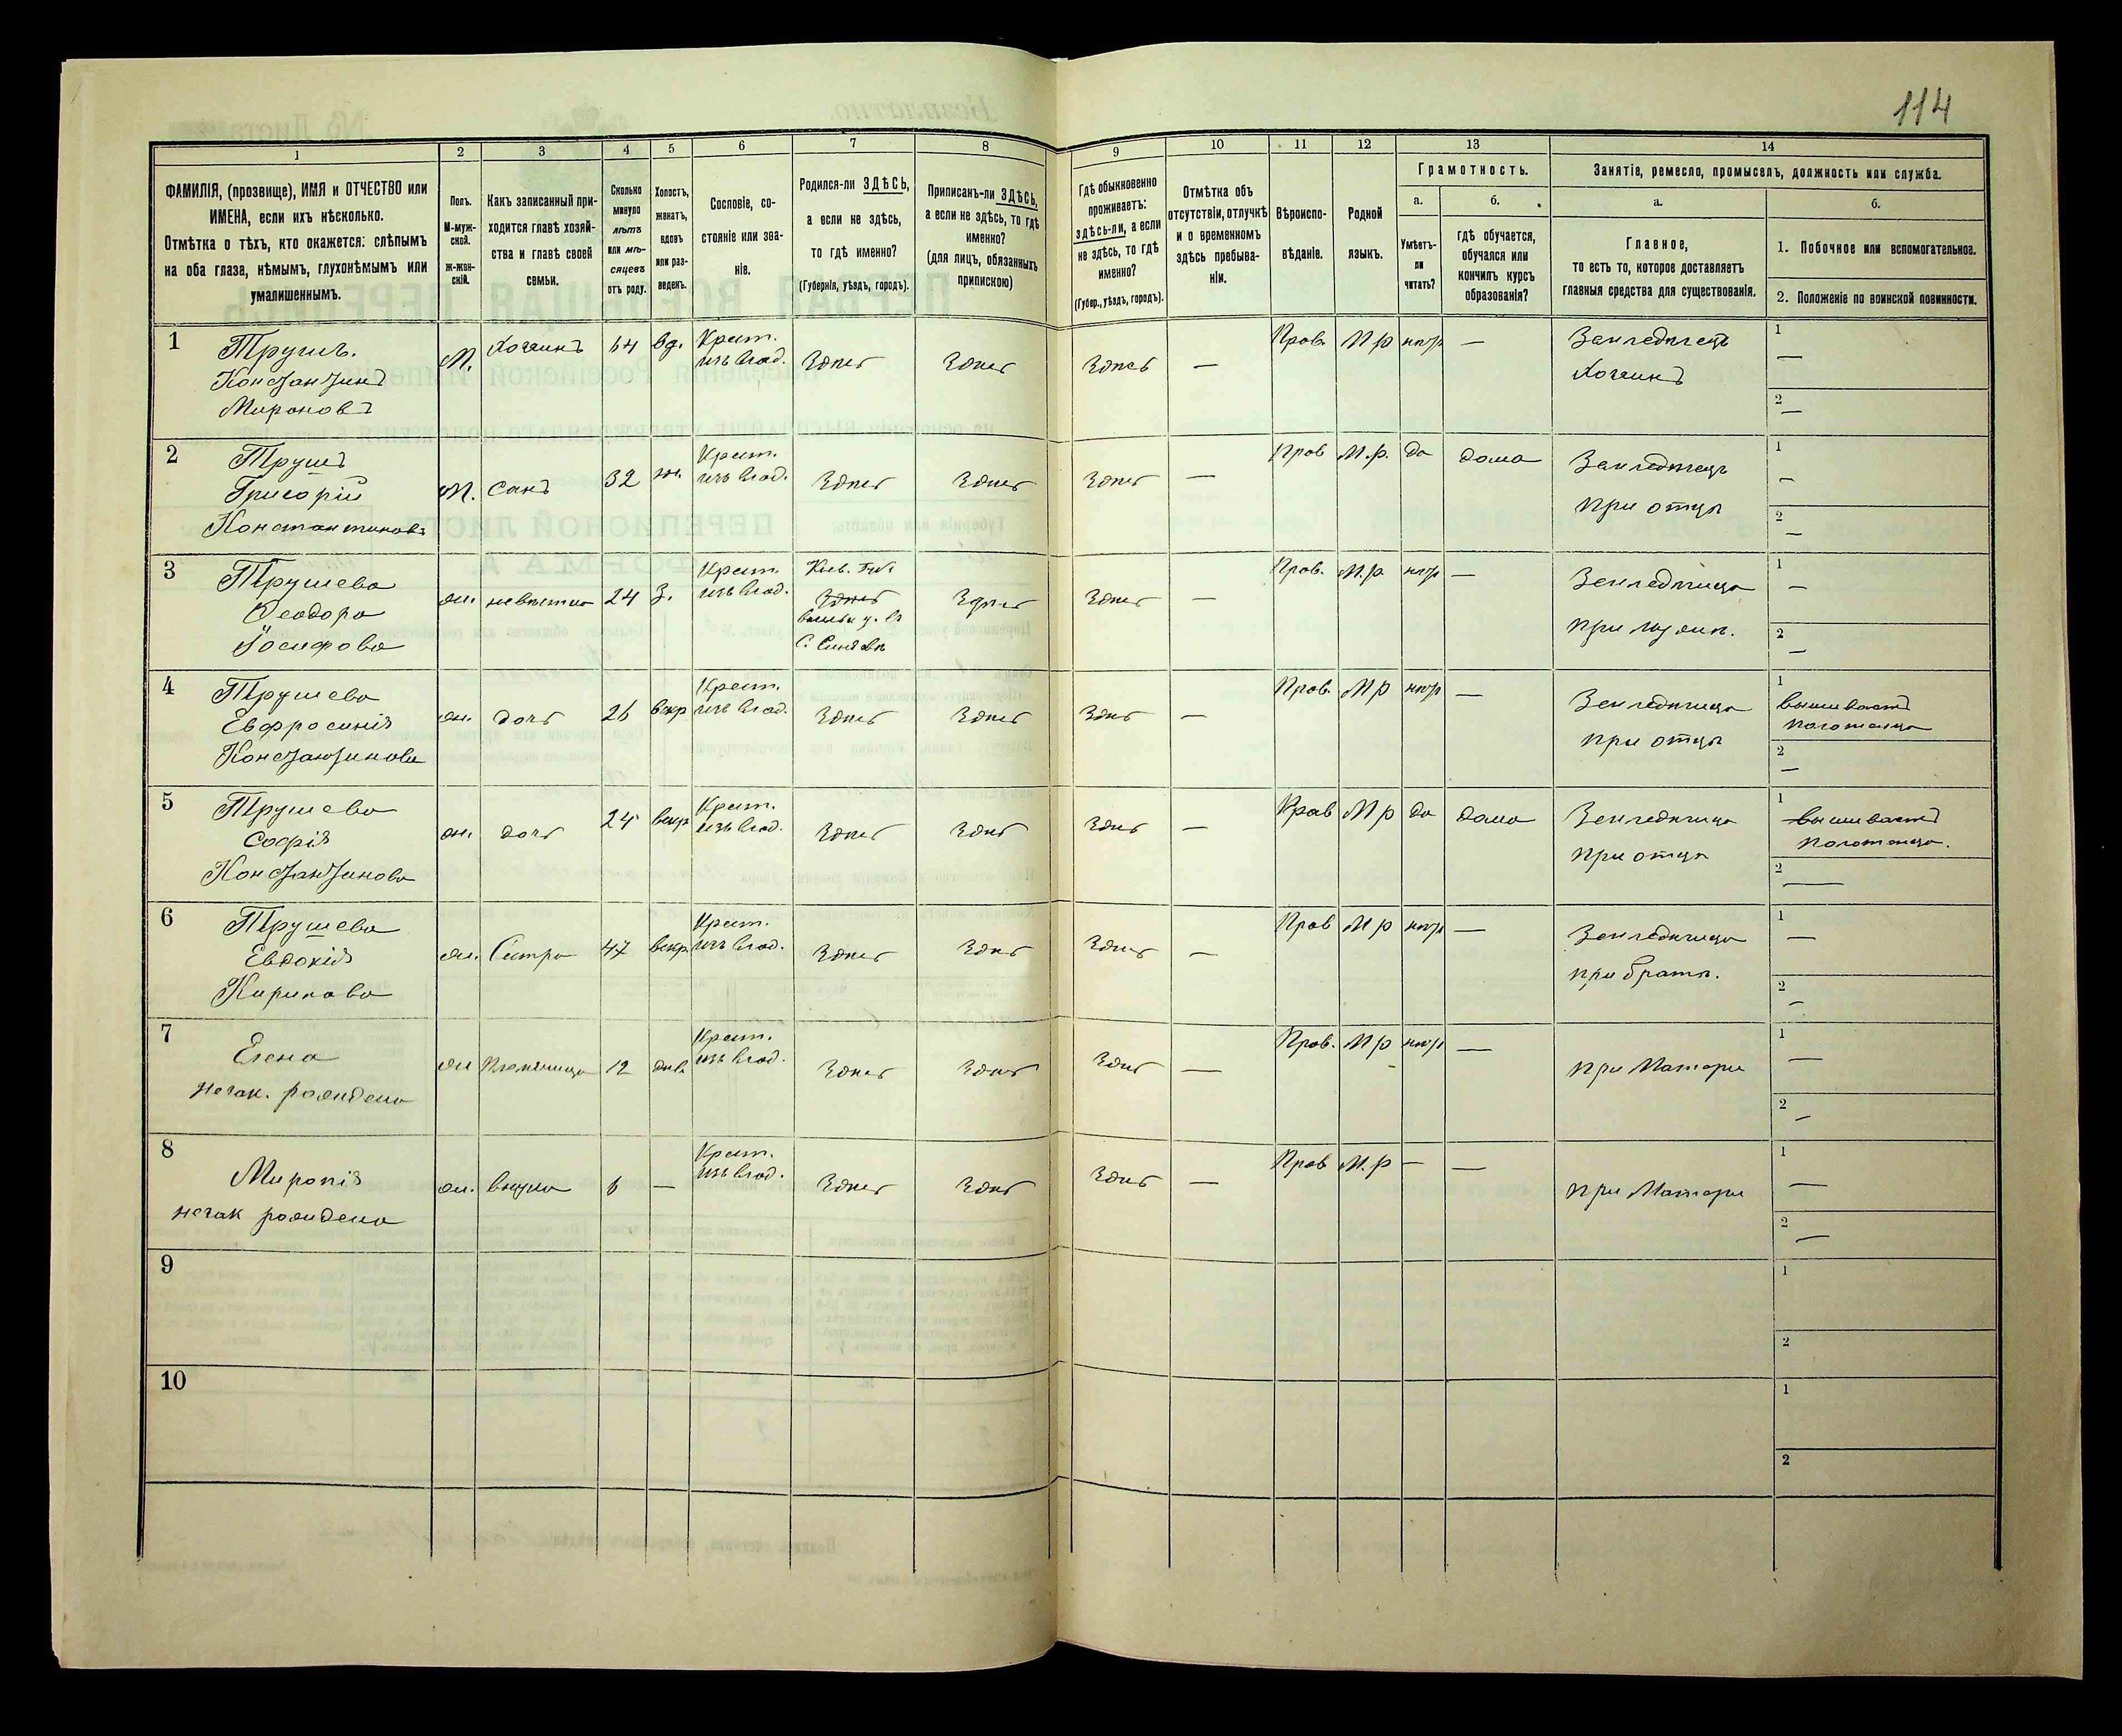 114
1 2 3 4 5 6 7 8 9 10 11 12 13 14
ФАМИЛІЯ, (прозвище), ИМЯ и ОТЧЕСТВО или
ИМЕНА, если ихъ нѣсколько.
Отмѣтка о тѣхъ, кто окажется: слѣпымъ
на оба глаза, нѣмымъ, глухонѣмымъ или
умалишеннымъ.
Полъ.
М-муж-
ской.
Ж-жен-
скій.
Какъ записанный при-
ходится главѣ хозяй-
ства и главѣ своей
семьи.
Сколько
минуло
лѣтъ
или мѣ-
сяцевъ
отъ роду.
Холостъ,
женатъ,
вдовъ
или раз-
веденъ.
Сословіе, со-
стояніе или зва-
ніе.
Родился-ли ЗДѢСЬ,
а если не здѣсь,
то гдѣ именно?
(Губернія, уѣздъ, городъ).
Приписанъ-ли ЗДѢСЬ,
а если не здѣсь, то гдѣ
именно?
(для лицъ, обязанныхъ
припискою)
Гдѣ обыкновенно
проживаетъ:
здѣсь-ли, а если
не здѣсь, то гдѣ
именно?
(Губер., уѣздъ, городъ).
Отмѣтка объ
отсутствіи, отлучкѣ
и о временномъ
здѣсь пребыва-
ніи.
Вѣроиспо-
вѣданіе.
Родной
языкъ.
Грамотность.
а.
Умѣетъ-
ли
читать?
б.
гдѣ обучается,
обучался или
кончилъ курсъ
образованія?
Занятіе, ремесло, промыселъ, должность или служба.
а.
Главное,
то есть то, которое доставляетъ
главныя средства для существованія.
б.
1. Побочное или вспомогательное.
2. Положеніе по воинской повинности.
1
Трушъ.
Константинъ
Мироновъ
М.
Хозяинъ
64
вд.
Крест.
изъ влад.
Здѣсь
Здѣсь
Здѣсь
—
Прав.
М р
нѣтъ
—
Земледѣлецъ
Хозяинъ
1
—
2
—
2
Трушъ
Григорій
Константиновъ
М.
Сынъ
32
ж.
Крест.
изъ влад.
Здѣсь
Здѣсь
Здѣсь
—
Прав
М.р.
да
дома
Земледѣлецъ
при отцѣ
1
—
2
—
3
Трушева
Феодора
Іосифова
ж.
невѣстка
24
З.
Крест.
изъ влад.
Кіев. Губ.
Здѣсь
С. Синявѣ
Здѣсь
Здѣсь
—
Прав.
М.р.
нѣтъ
—
Земледѣлица
при мужѣ.
1
—
2
—
4
Трушева
Евфросинія
Константинова
ж.
дочь
26
Крест.
изъ влад.
Здѣсь
Здѣсь
Здѣсь
—
Прав.
М р
нѣтъ
—
Земледѣлица
при отцѣ
1
вышиваетъ
полотенца
2
—
5
Трушева
Софія
Константинова
ж.
дочь
24
Крест.
изъ влад.
Здѣсь
Здѣсь
Здѣсь
—
Прав
М р
да
дома
Земледѣлица
при отцѣ
1
вышиваетъ
полотенца.
2
—
6
Трушева
Евдокія
Кирилова
ж.
Сестра
47
Крест.
изъ влад.
Здѣсь
Здѣсь
Здѣсь
—
Прав
М р
нѣтъ
—
Земледѣлица
при братѣ.
1
—
2
—
7
Елена
незак. рождена
ж
племяница
12
дѣв.
Крест.
изъ влад.
Здѣсь
Здѣсь
Здѣсь
—
Прав.
М р
нѣтъ
—
при Матери
1
—
2
—
8
Миропія
незак рождена
ж.
внучка
6
—
Крест.
изъ влад.
Здѣсь
Здѣсь
Здѣсь
—
Прав
М.р
—
—
при Матери
1
—
2
—
9
1
2
10
1
2